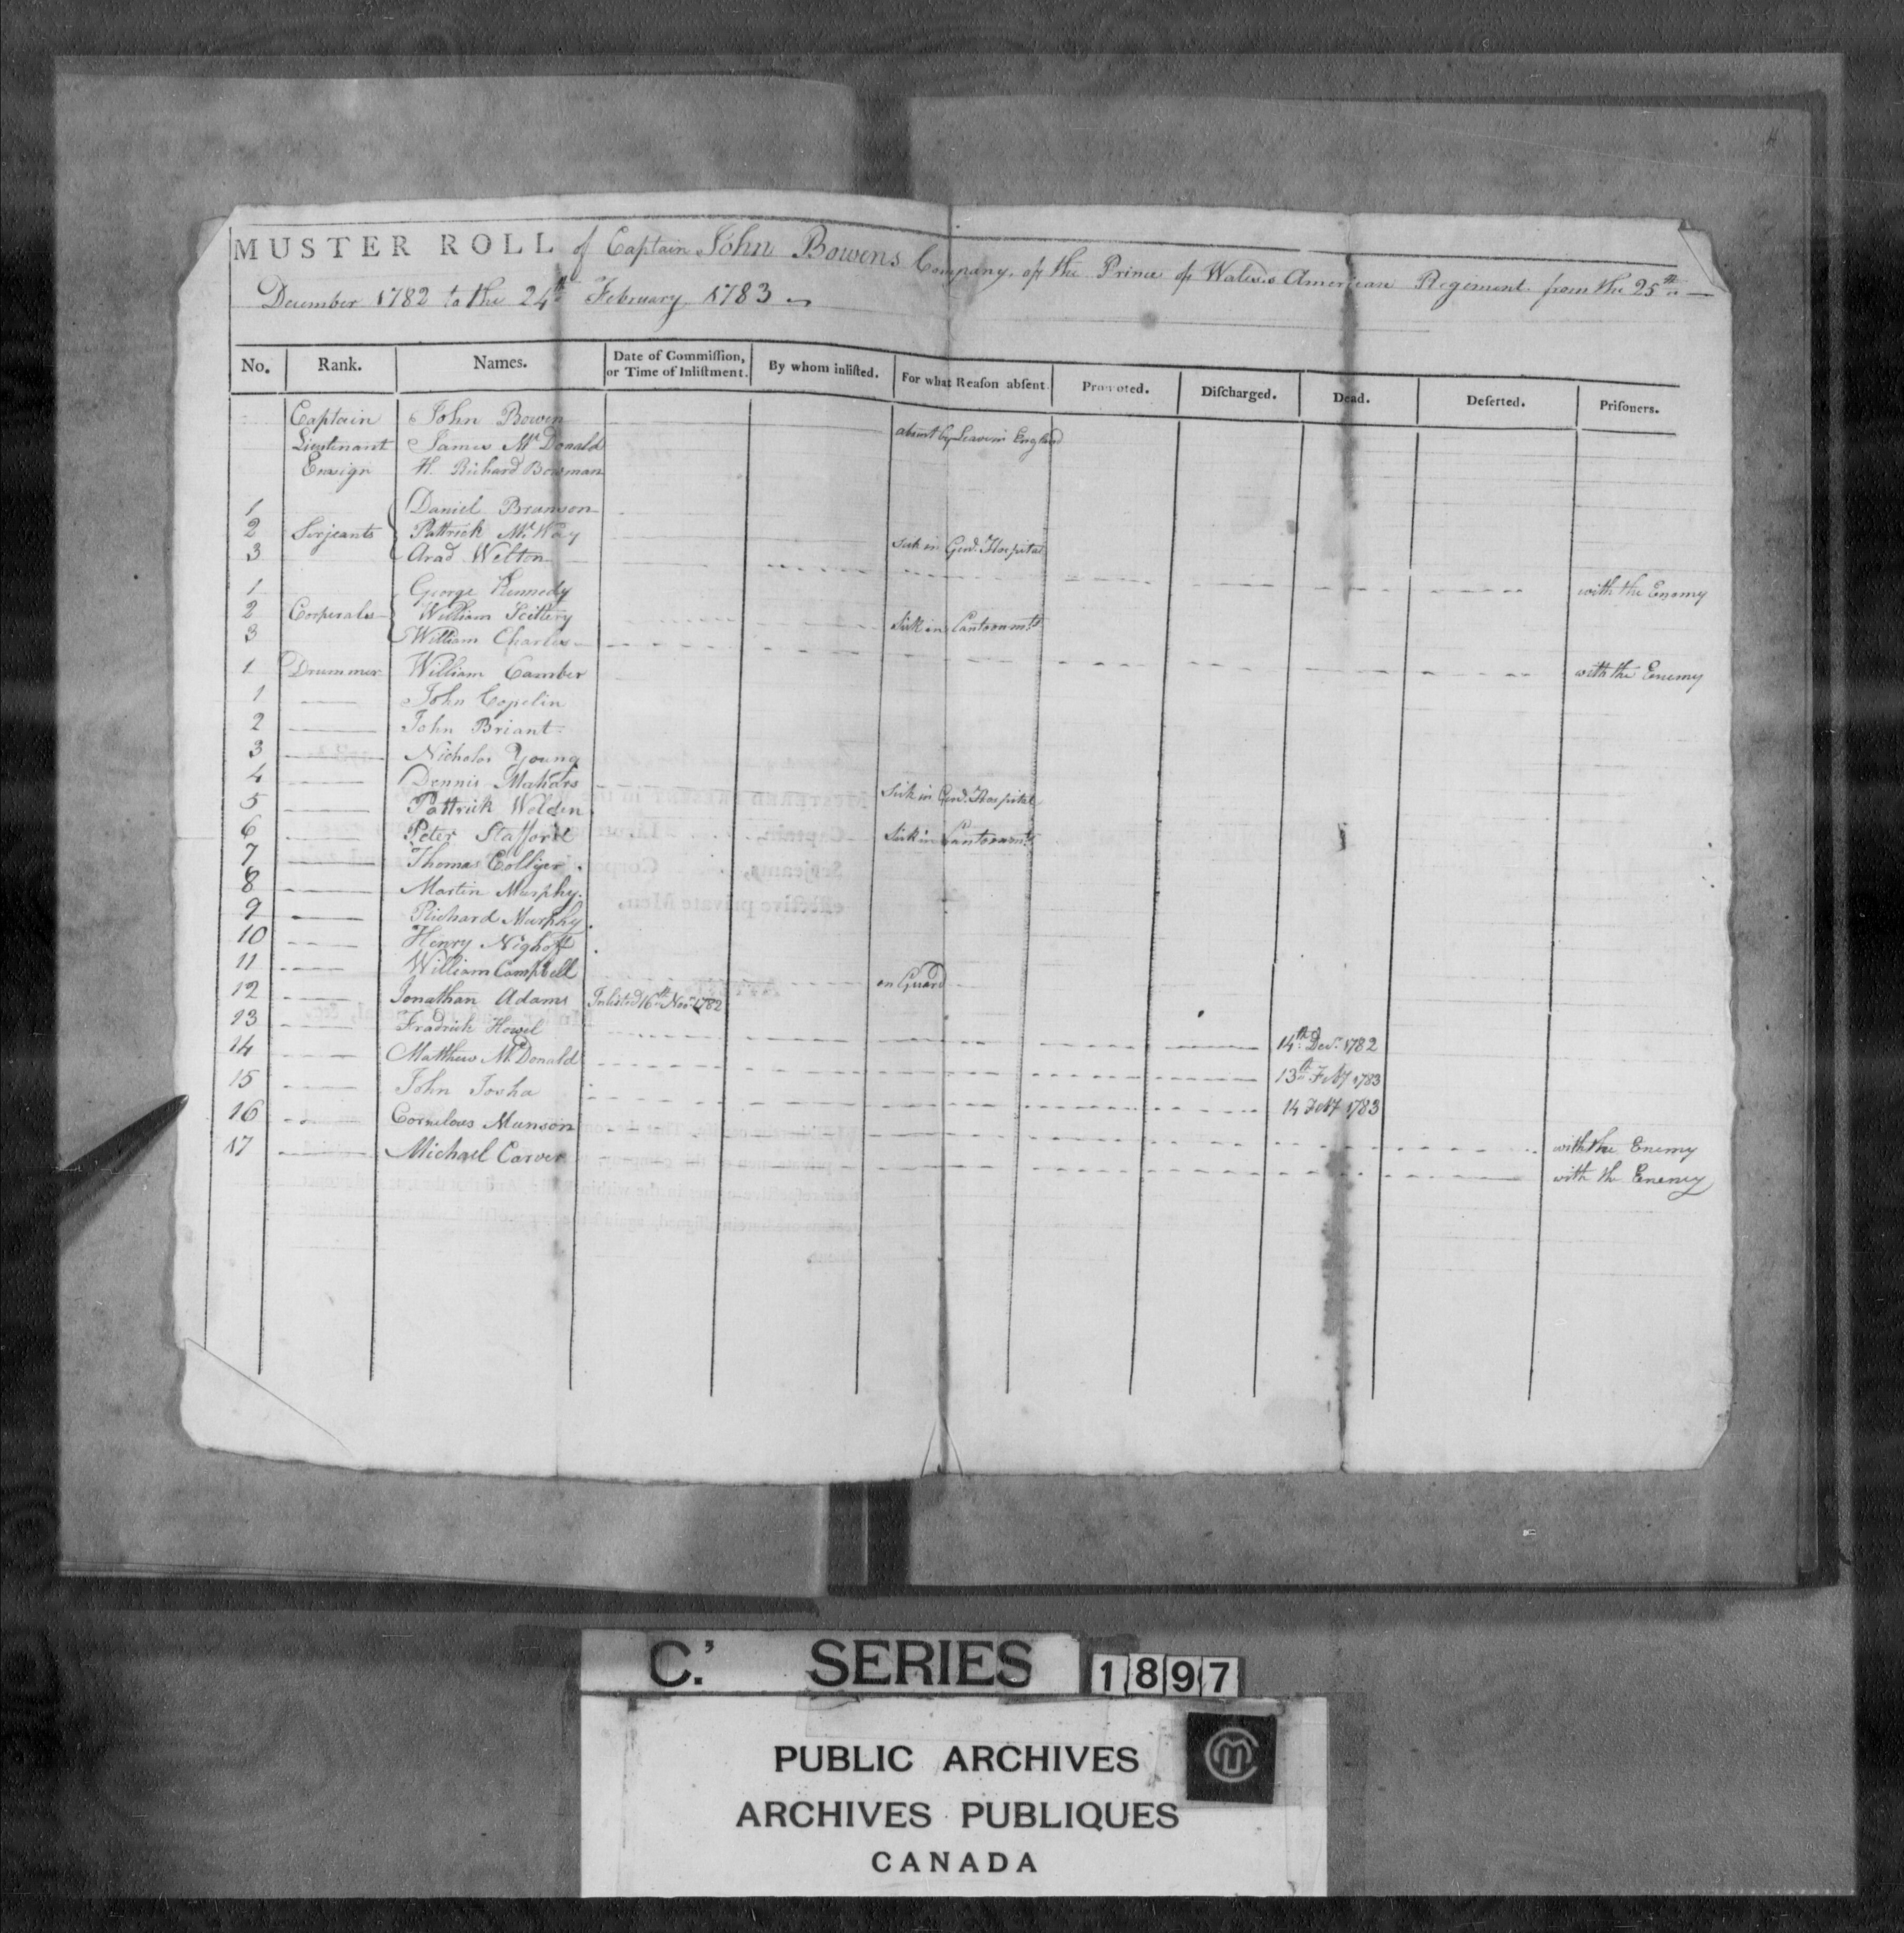 4
MUSTER ROLL of Captain John Bowens Company, of the Prince of Wales's American Regiment from the 25th
December 1782 to the 24th February 1783
No. Rank. Names. Date of Commission, or Time of Inlistment. By whom inlisted. For what Reason absent. Promoted. Discharged. Dead. Deserted. Prisoners.
Captain John Bowen absent by Leave in England
Lieutenant James McDonald
Ensign H. Richard Bowman
1 Daniel Branson
2 Serjeants Pattrick McKay
3 Arad Welton Sick in Genl. Hospital
1 George Kennedy with the Enemy
2 Corporals William
3 William Charles Sick in Cantoonmts
1 Drummer William Camber with the Enemy
1 John Copelin
2 John Briant
3 Nicholas Young
4 Dennis
5 Pattrick Welden Sick in Genl. Hospital
6 Peter Stafford Sick in Cantoonmts
7 Thomas Collyer
8 Martin Murphy
9 Richard Murphy
10 Henry
11 William Campbell
12 Jonathan Adams Inlisted 16th Novr. 1782 on Guard
13 Fradrick Howel 14th Decr. 1782
14 Matthew McDonald 13th Feby 1783
15 John Tosha 14 Feby 1783
16 Cornelous Munson with the Enemy
17 Michael Carver with the Enemy
C.' SERIES 1897
PUBLIC ARCHIVES
ARCHIVES PUBLIQUES
CANADA